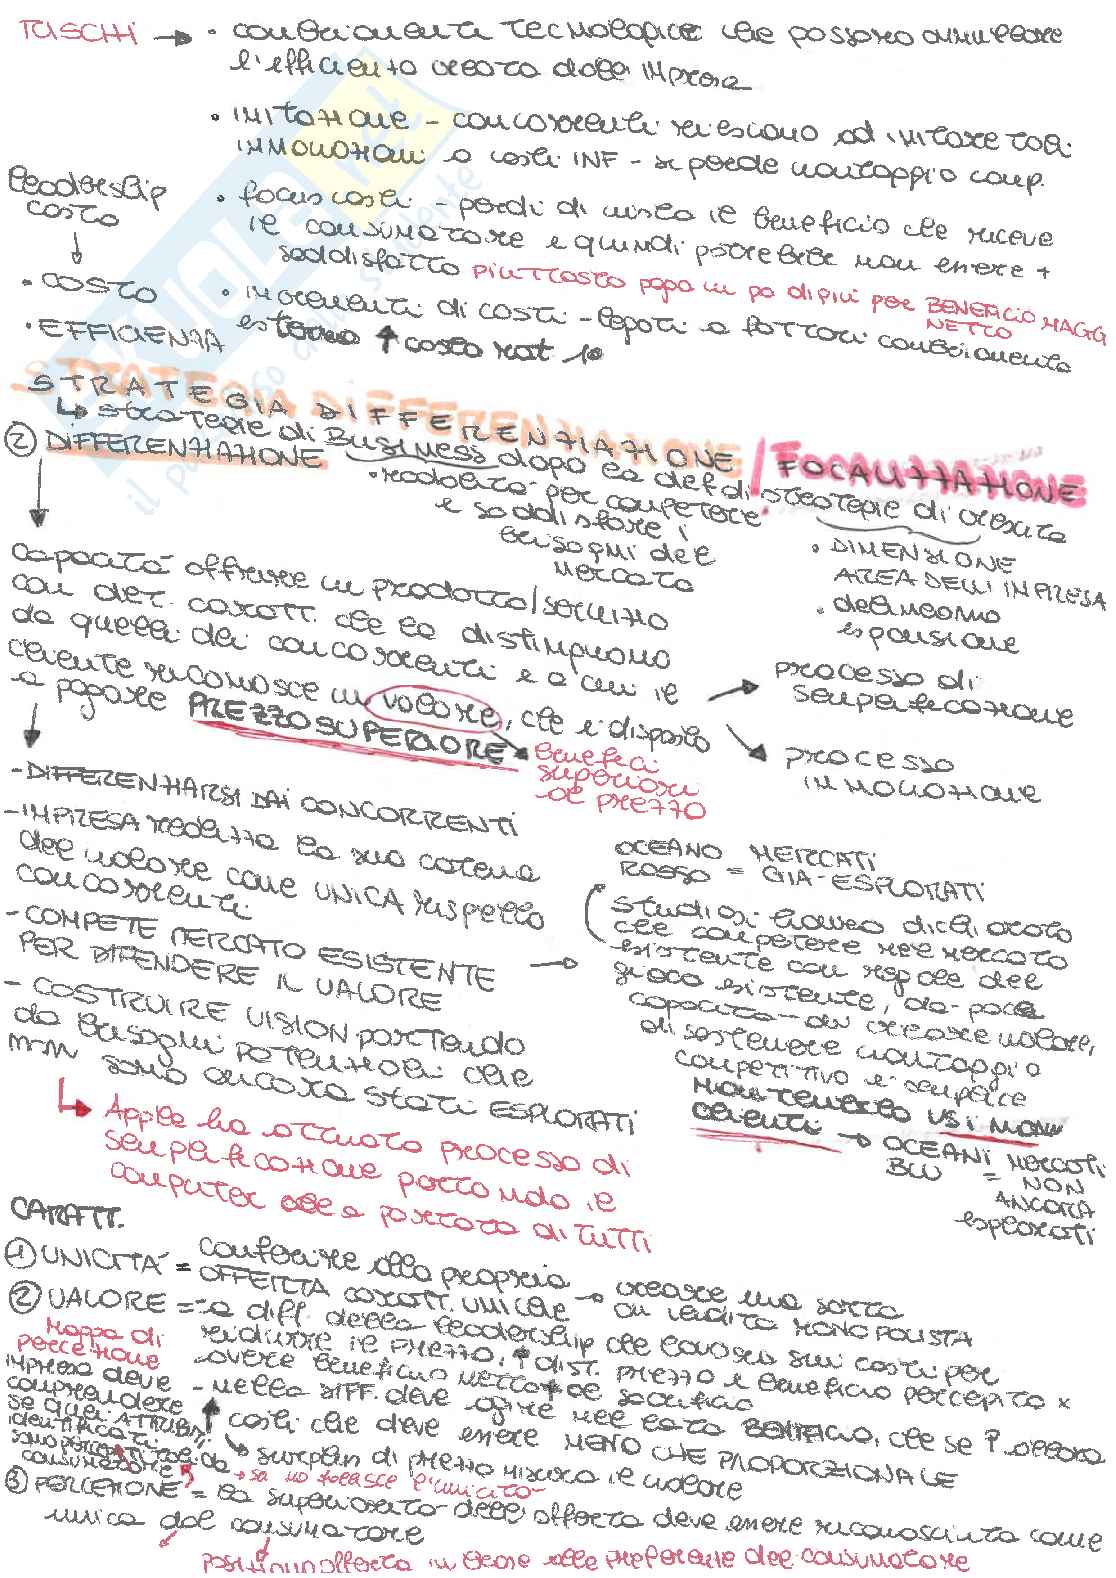 RISCHI → • cambiamenti tecnologici che possono annullare
l'efficienza creata dalla impresa
• IMITAZIONE – concorrenti riescono ad imitare tali
INNOVAZIONI a costi INF – si perde vantaggio comp.
leadership
costo
• COSTO
• EFFICIENZA
• focus costi – perdi di vista il beneficio che riceve
il consumatore e quindi potrebbe non essere +
soddisfatto piuttosto pago un po di più per BENEFICIO MAGG
NETTO
• incrementi di costi – legati a fattori cambiamento
esterno ↑ costo mat 1e
STRATEGIA DIFFERENZIAZIONE / FOCALIZZAZIONE
↳ strategie di Business dopo la def di strategie di crescita
② DIFFERENZIAZIONE
• modalità per competere
e soddisfare i
bisogni del
mercato
• DIMENSIONE
AREA DELL'IMPRESA
• delineano
espansione
capacità offrire un prodotto/servizio
con det. caratt. che lo distinguono
da quelli dei concorrenti e a cui il
cliente riconosce un valore, che è disposto
a pagare PREZZO SUPERIORE
→ benefici
superiori
al prezzo
→ processo di
semplificazione
→ processo
innovazione
– DIFFERENZIARSI DAI CONCORRENTI
– IMPRESA realizza la sua catena
del valore come UNICA rispetto
concorrenti
– COMPETE MERCATO ESISTENTE
PER DIFENDERE IL VALORE
– COSTRUIRE VISION partendo
da bisogni potenziali che
non sono ancora stati ESPLORATI
OCEANO ROSSO = MERCATI GIA' ESPLORATI
Studiosi hanno dichiarato
che competere nel mercato
esistente con regole del
gioco esistente, dà poca
capacità di creare valore,
di sostenere vantaggio
competitivo e semplice
mantenerlo vs i non
clienti → OCEANI BLU = mercati
NON
ANCORA
esplorati
↳ Apple ha attuato processo di
semplificazione portando il
computer alla portata di TUTTI
CARATT.
① UNICITÀ = conferire alla propria
OFFERTA caratt. uniche → creare una sorta
di vendita MONOPOLISTA
② VALORE = – a diff. della leadership che lavora sui costi per
ridurre il prezzo, ↑ dist. prezzo e beneficio percepito x
avere beneficio netto ↑ al sacrificio
– nella DIFF. deve agire nel lato BENEFICIO, che se ↑ allora
↑ costi che deve essere MENO CHE PROPORZIONALE
↳ surplus di prezzo misura il valore
Mappa di
percezione
impresa deve
comprendere
se quei ATTRIBUTI
identificati
sono percepiti tali da
consumatore
③ PERCEZIONE = la superiorità dell'offerta deve essere riconosciuta come
unica dal consumatore
posizionano offerta in base alle preferenze del consumatore